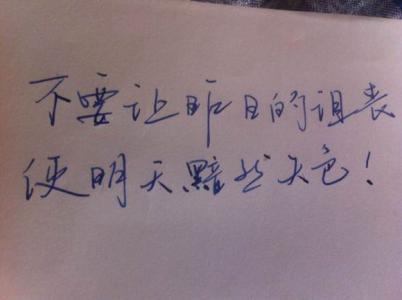 不要让昨日的沮丧
使明天黯然失色!